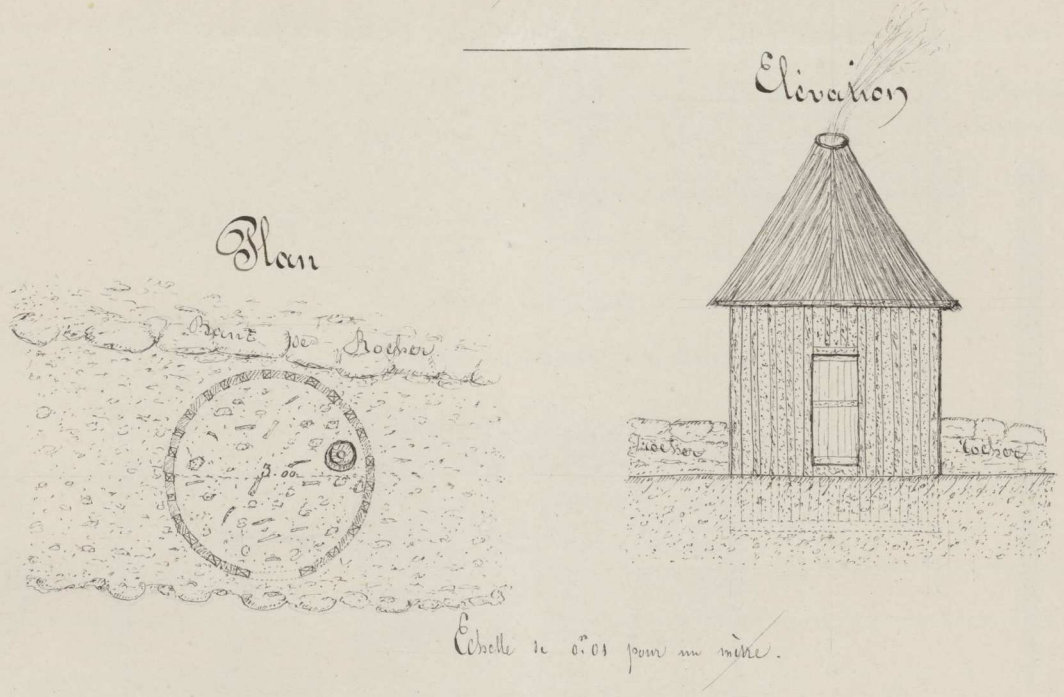 Elévation
Plan
Banc de Rocher
3.00
Rocher
rocher
Echelle de 0.m01 pour un mètre.